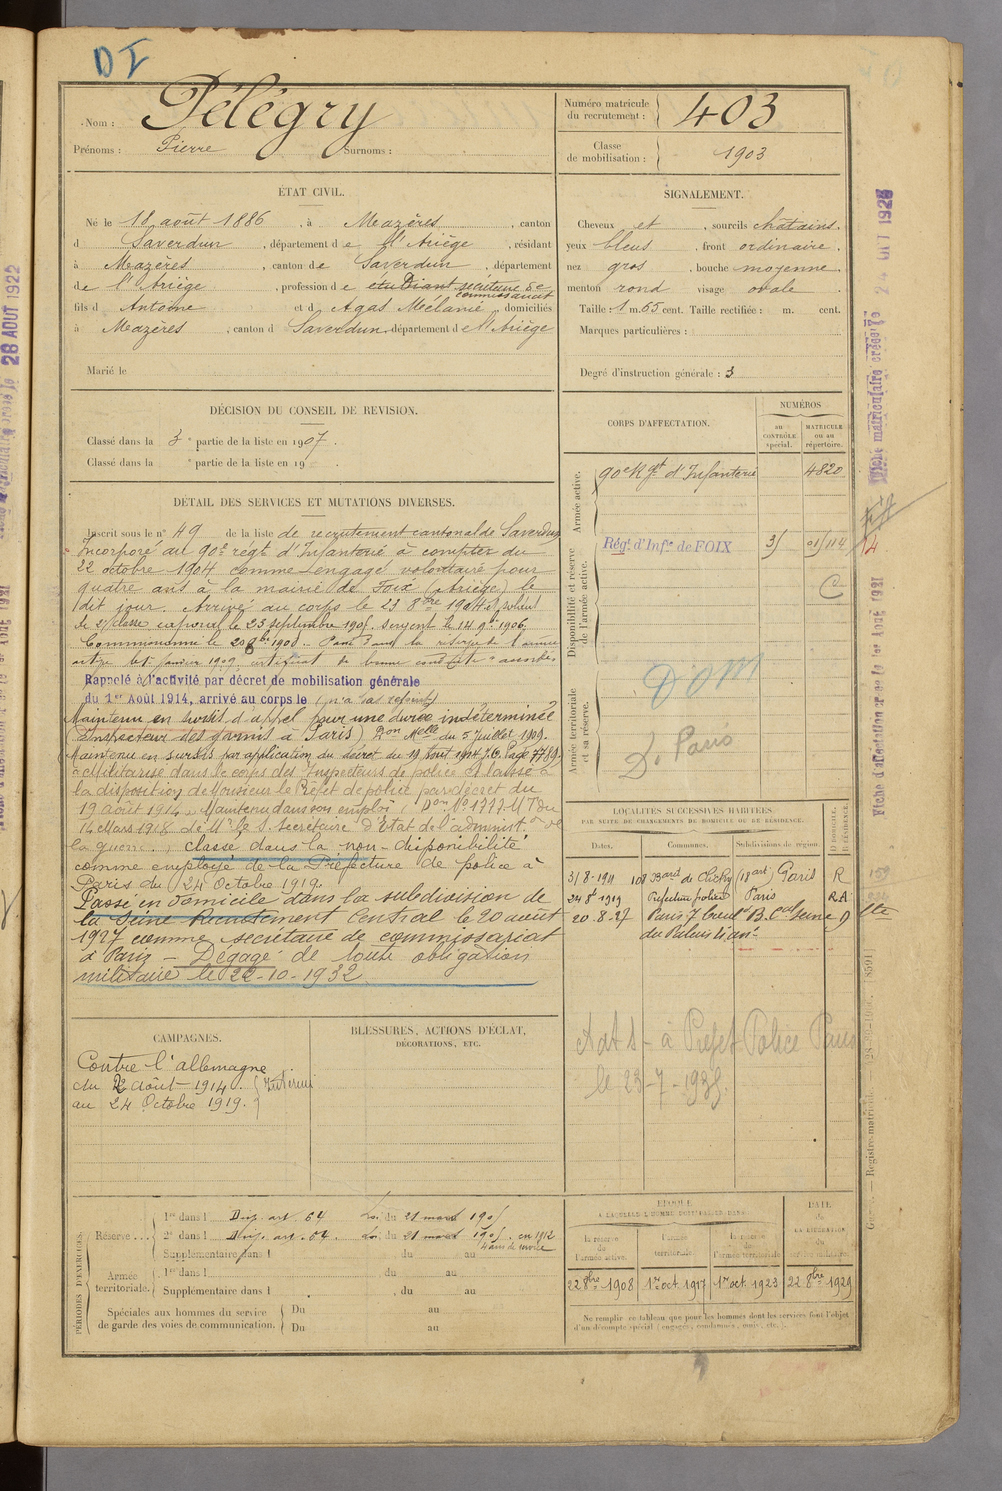 DI
Nom : Pélégry
Prénoms : Pierre Surnoms :
Numéro matricule du recrutement : 403
Classe de mobilisation : 1903
ÉTAT CIVIL.
Né le 18 août 1886, à Mazères, canton
d Saverdun, département de l'Ariège, résidant
à Mazères, canton de Saverdun, département
de l'Ariège, profession de étudiant secrétaire de commissariat
fils d Antoine et d Agas Mélanie domiciliés
à Mazères, canton d Saverdun département de l'Ariège
Marié le
SIGNALEMENT.
Cheveux et, sourcils châtains.
yeux bleus, front ordinaire.
nez gros, bouche moyenne.
menton rond visage ovale.
Taille : 1 m. 65 cent. Taille rectifiée : m. cent.
Marques particulières :
Degré d'instruction générale : 3
DÉCISION DU CONSEIL DE REVISION.
Classé dans la 3e partie de la liste en 1907.
Classé dans la e partie de la liste en 19 .
DÉTAIL DES SERVICES ET MUTATIONS DIVERSES.
Inscrit sous le n° 49 de la liste de recrutement cantonal de Saverdun
Incorporé au 90e régt d'Infanterie à compter du
22 octobre 1904 comme engagé volontaire pour
quatre ans à la mairie de Foix (Ariège) le
dit jour. Arrivé au corps le 23 8bre 1904 et soldat
de 2e classe caporal le 23 septembre 1905. sergent le 14 9bre 1906.
certificat de bonne conduite accordé
Rappelé à l'activité par décret de mobilisation générale
du 1er Août 1914, arrivé au corps le (n'a pas rejoint)
Maintenu en sursis d'appel pour une durée indéterminée
(Inspecteur des garnis à Paris) Don Melle du 5 Juillet 1909.
Maintenu en sursis par application du décret du 19 Août 1914 J.O. Page 7789
Militarisé dans le corps des Inspecteurs de police et laissé à
la disposition de Monsieur le Préfet de police par décret du
19 août 1914. Maintenu dans son emploi (Don N° 1777 M T du
14 Mars 1918 de Mr le S. Secrétaire d'Etat de l'administ.on de
la guerre.) classé dans la non-disponibilité
comme employé de la Préfecture de police à
Paris du 24 Octobre 1919.
Passé en domicile dans la subdivision de
la Seine Recrutement Central le 20 août
1927 comme secrétaire de commissariat
à Paris — Dégagé de toute obligation
militaire le 22-10-1932
CORPS D'AFFECTATION.
NUMÉROS
au CONTRÔLE spécial.
MATRICULE ou au répertoire.
Armée active.
90e Rgt d'Infanterie 4820
Disponibilité et réserve de l'armée active.
Régt d'Infie de FOIX
Armée territoriale et sa réserve.
DOM
D. Paris
LOCALITÉS SUCCESSIVES HABITÉES
PAR SUITE DE CHANGEMENTS DE DOMICILE OU DE RÉSIDENCE.
Dates. Communes. Subdivisions de région. D DOMICILE. R RÉSIDENCE.
108 Bard de Clichy (18e art) Paris R
24 8bre 1919 Préfecture police Paris RA
20.8.27 Paris 7 Boul d B.cal Seine D
du Palais 4e arrt
Adt S - à Préfet Police Paris
le 23-7-1935.
CAMPAGNES.
Contre l'allemagne
du 2 août 1914. Intérieur
au 24 Octobre 1919.
BLESSURES, ACTIONS D'ÉCLAT,
DÉCORATIONS, ETC.
PÉRIODES D'EXERCICES.
Réserve... 1re dans l Disp. art. 64 Loi du 21 mars 1905
2e dans l Disp. art. 64 Loi du 21 mars 1905. en 1912
4 ans de service
Supplémentaire dans l du au
Armée territoriale. 1re dans l du au
Supplémentaire dans l du au
Spéciales aux hommes du service de garde des voies de communication.
Du au
Du au
ÉPOQUE
A LAQUELLE L'HOMME DOIT PASSER DANS
la réserve de l'armée active.
l'armée territoriale.
la réserve de l'armée territoriale
DATE de LA LIBÉRATION du service militaire.
22 8bre 1908 1er oct. 1917 1er oct. 1923 22 8bre 1929
Ne remplir ce tableau que pour les hommes dont les services font l'objet
d'un décompte spécial (engagés, condamnés, omis, etc.).
Fiche matriculaire créée le
Fiche d'affectation créée le 1er Août 1921
28 AOUT 1922